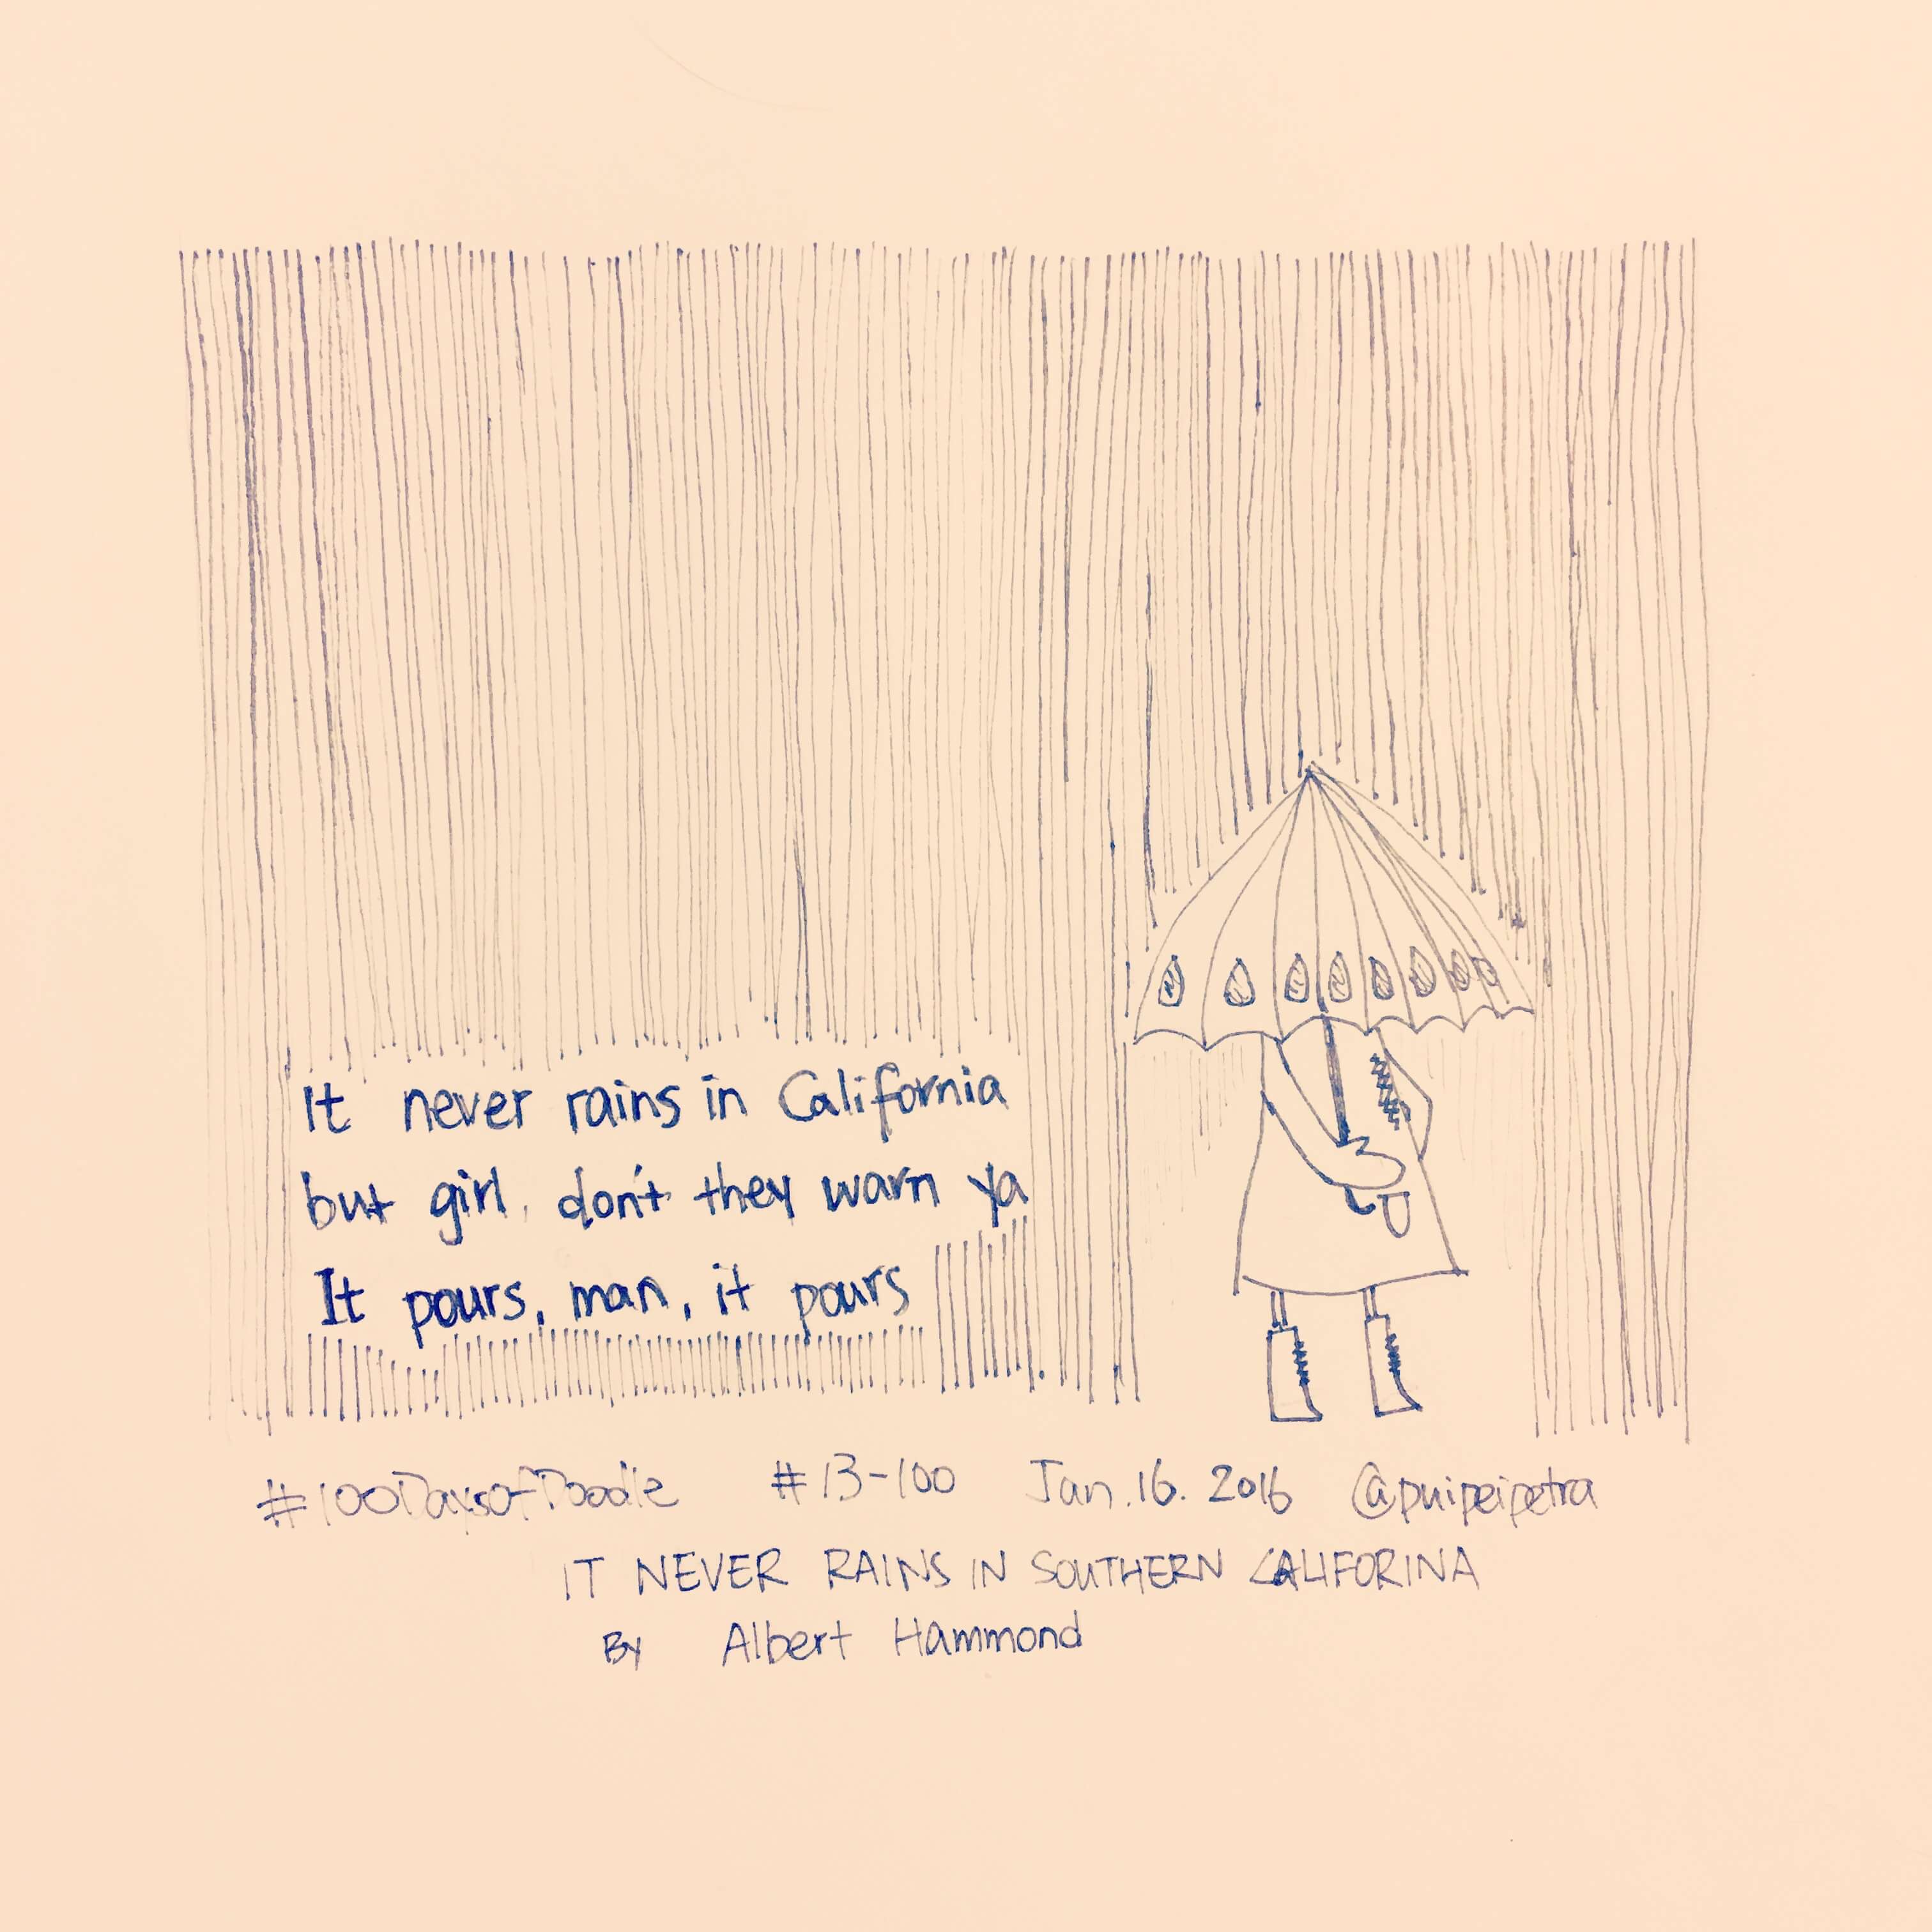 It never rains in California
but girl, don't they warn ya
It pours, man, it pours
#100DaysofDoodle #13-100 Jan.16.2016 @puipeipetra
IT NEVER RAINS IN SOUTHERN CALIFORINA
By Albert Hammond